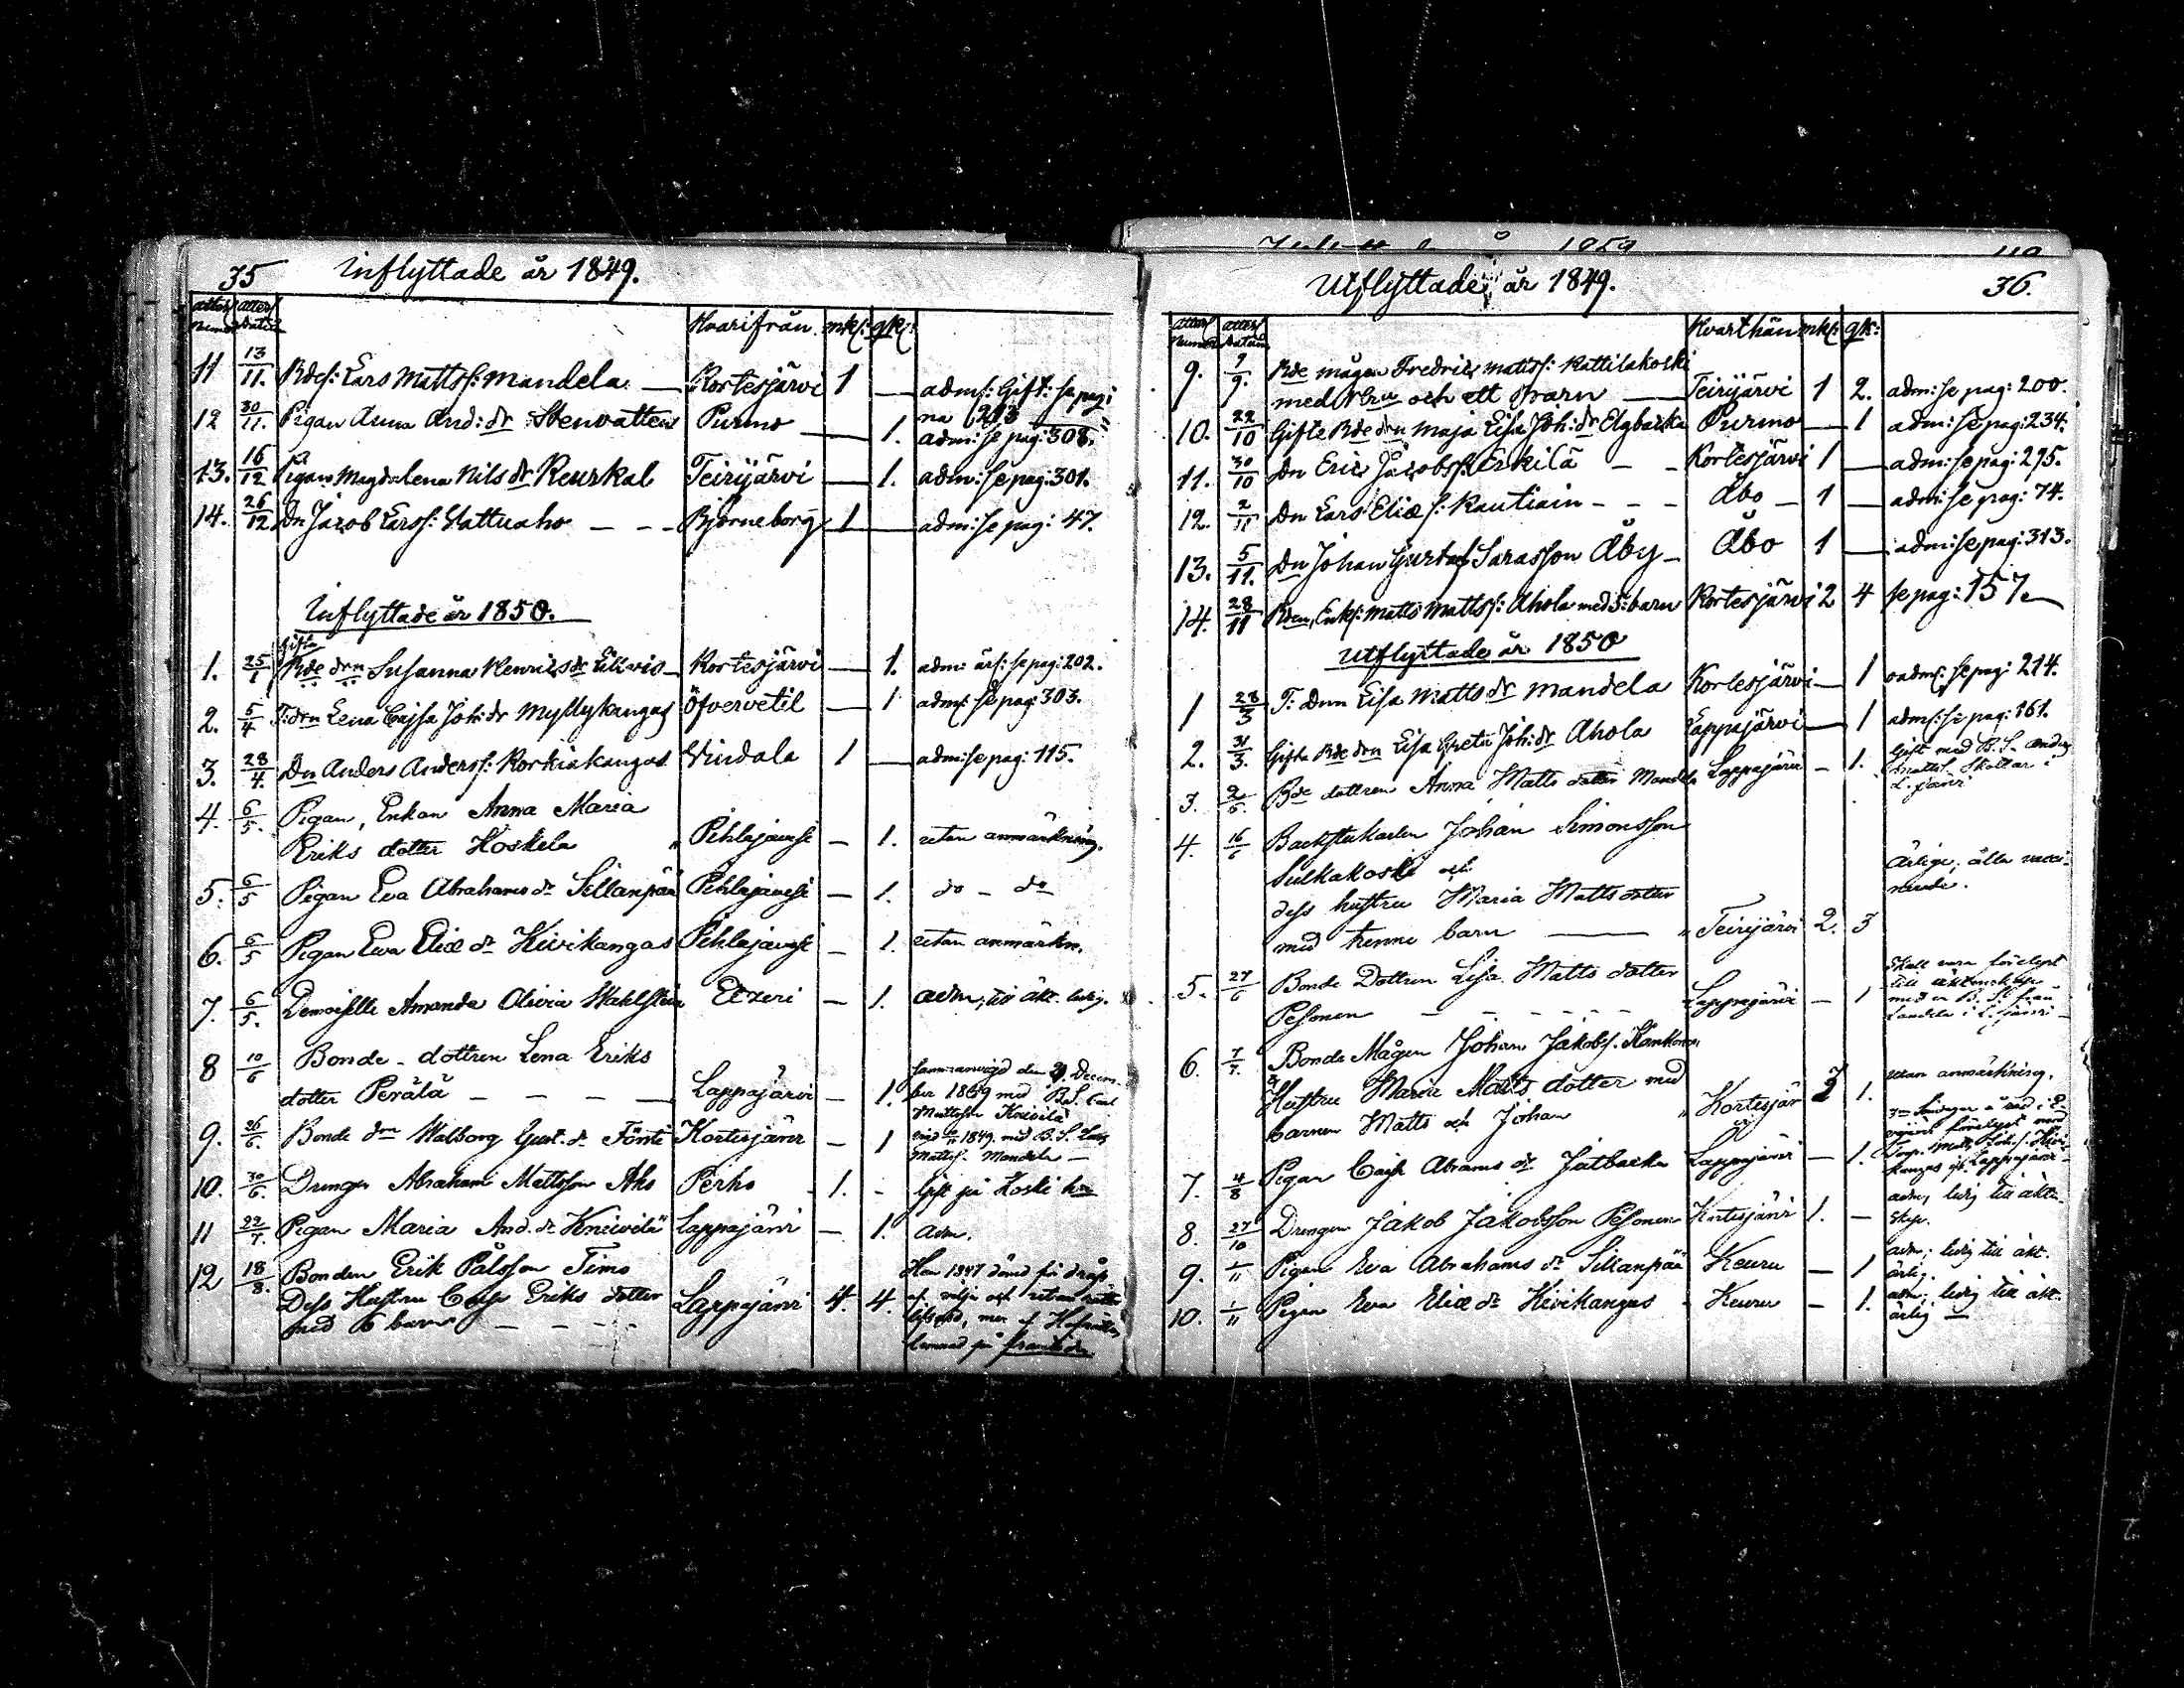 35 Inflyttade år 1849.
Hvarifrån. mk: qk:
11 13/11. Bdes: Lars Matts: Mandela — Kortesjärvi 1 — adm: Gift: se pagi
na 213
12 30/11. Pigan Anna And: dr Stenvatten Purmo — 1. adm: se pag: 308.
13. 16/12 Pigan Magdalena Nils dr Keurkal Teirijärvi — 1. adm: se pag: 301.
14. 26/12 Dn Jacob Larss: Hattuaho — — — Björneborg 1 — adm: se pag: 47.
Inflyttade år 1850.
Gifta
1. 25/1 Bde drn Susanna Henrics dr — Kortesjärvi — 1. adm: se pag: 202.
2. 5/4 T: drn Lena Cajsa Joh: dr Myllykangas Öfvervetil — 1 adm: se pag: 303.
3. 28/4. Dn Anders Anderss: Korkiakangas Vindala 1 — adm: se pag: 115.
4. 6/5. Pigan, Enkan Anna Maria
Eriks dotter Koskela " Pihlajavesi — 1. utan anmärkning.
5. 6/5 Pigan Eva Abrahams dr Sillanpää Pihlajavesi — 1. do — do
6. 6/5 Pigan Ewa Eliæ dr Kivikangas Pihlajavesi — 1. utan anmärkn.
7. 6/5. Demoiselle Amanda Olivia Wahlstén Etzeri — 1. adm; till äkt. ledig.
8 10/6 Bonde-dottren Lena Eriks
dotter Perälä — — — — Lappajärvi — 1. Sammanvigd den Decem-
ber 18 med B.S.
Mattsson Kniivilä
9. 26/6. Bonde drn Walborg Gust. dr Töntti Kortesjärvi — 1 1849 med B. S. Lars
Matts. Mandela —
10. 30/6. Drengen Abraham Mattsson Aho Perho 1. - Gift på Koski
11 22/7. Pigan Maria And. dr Kniivilä Lappajärvi — 1. adm.
12 18/8. Bonden Erik Pålsson Timo
Dess Hustru Caisa Eriks dotter
med 6 barn — — — Lappajärvi 4. 4. Han 1847 dömd för dråp
af
, men af Hofrätten

Utflyttade år 1849. 36.
Hvarthän mk: qk:
9. 7/9. Bde mågen Fredric Matts: Kattilakoski
med Hu och ett barn — Teirijärvi 1 2. adm: se pag: 200.
10. 22/10 Gifte Bde drn Maja Lisa Joh: dr Elgbacka Purmo — 1 adm: se pag: 234.
11. 30/10 Dn Eric Jacobss: Erkilä — — Kortesjärvi 1 — adm: se pag: 295.
12. 2/11 Dn Lars Eliæ s: Rautiain — — — Åbo — 1 — adm: se pag: 74.
13. 5/11. Dn Johan Gustaf Sarasson Åby — Åbo 1 — adm: se pag: 313.
14. 28/11 Bden, Enkl: Matts Matts: Ahola med 5: barn Kortesjärvi 2 4 se pag: 157.
Utflyttade år 1850
1 28/3 T: drnn Lisa Matts dr Mandela Kortesjärvi — 1 oadm: se pag: 214.
2. 31/3. Gifta Bde drn Lisa Greta Joh: dr Ahola Lappajärvi — 1 adm: se pag: 161.
3. 2/6. Bde dottren Anna Matts dotter Mandela Lappajärvi — 1. Gift med B. S. Anders
Matts. i
L. järvi
4. 16/6 Backstukarlen Johan Simonsson
Sulkakoski och
dess hustru Maria Matts dotter
med trenne barn — " Teirijärvi 2. 3 ärlige, älla
5. 27/6 Bonde Dottren Lisa Matts dotter
Pesonen — — — — — Lappajärvi — 1 Skall vara förelyst
till äktenskap
med en B. S. från
Landela i L. järvi
6. 7/7. Bonde Mågen Johan Jakobs. Kankonen
& Hustru Maria Matts dotter med
barnen Matts och Johan " Kortesjärvi 3 1. utan anmärkning.
7. 4/8 Pigan Caisa Abrams dr Jutbacka Lappajärvi — 1. Matts Joh.s. Kivi-
kangas fr. Lappajärvi
8. 27/10 Drengen Jakob Jakobsson Pesonen Kortesjärvi 1. — adm, ledig till äkten-
skap.
9. 1/11 Pigan Eva Abrahams dr Sillanpää Keuru — 1 adm; ledig till äkt.
ärlig.
10. 1/11 Pigan Eva Eliæ dr Kivikangas — Keuru — 1. adm; ledig till äkt.
ärlig —